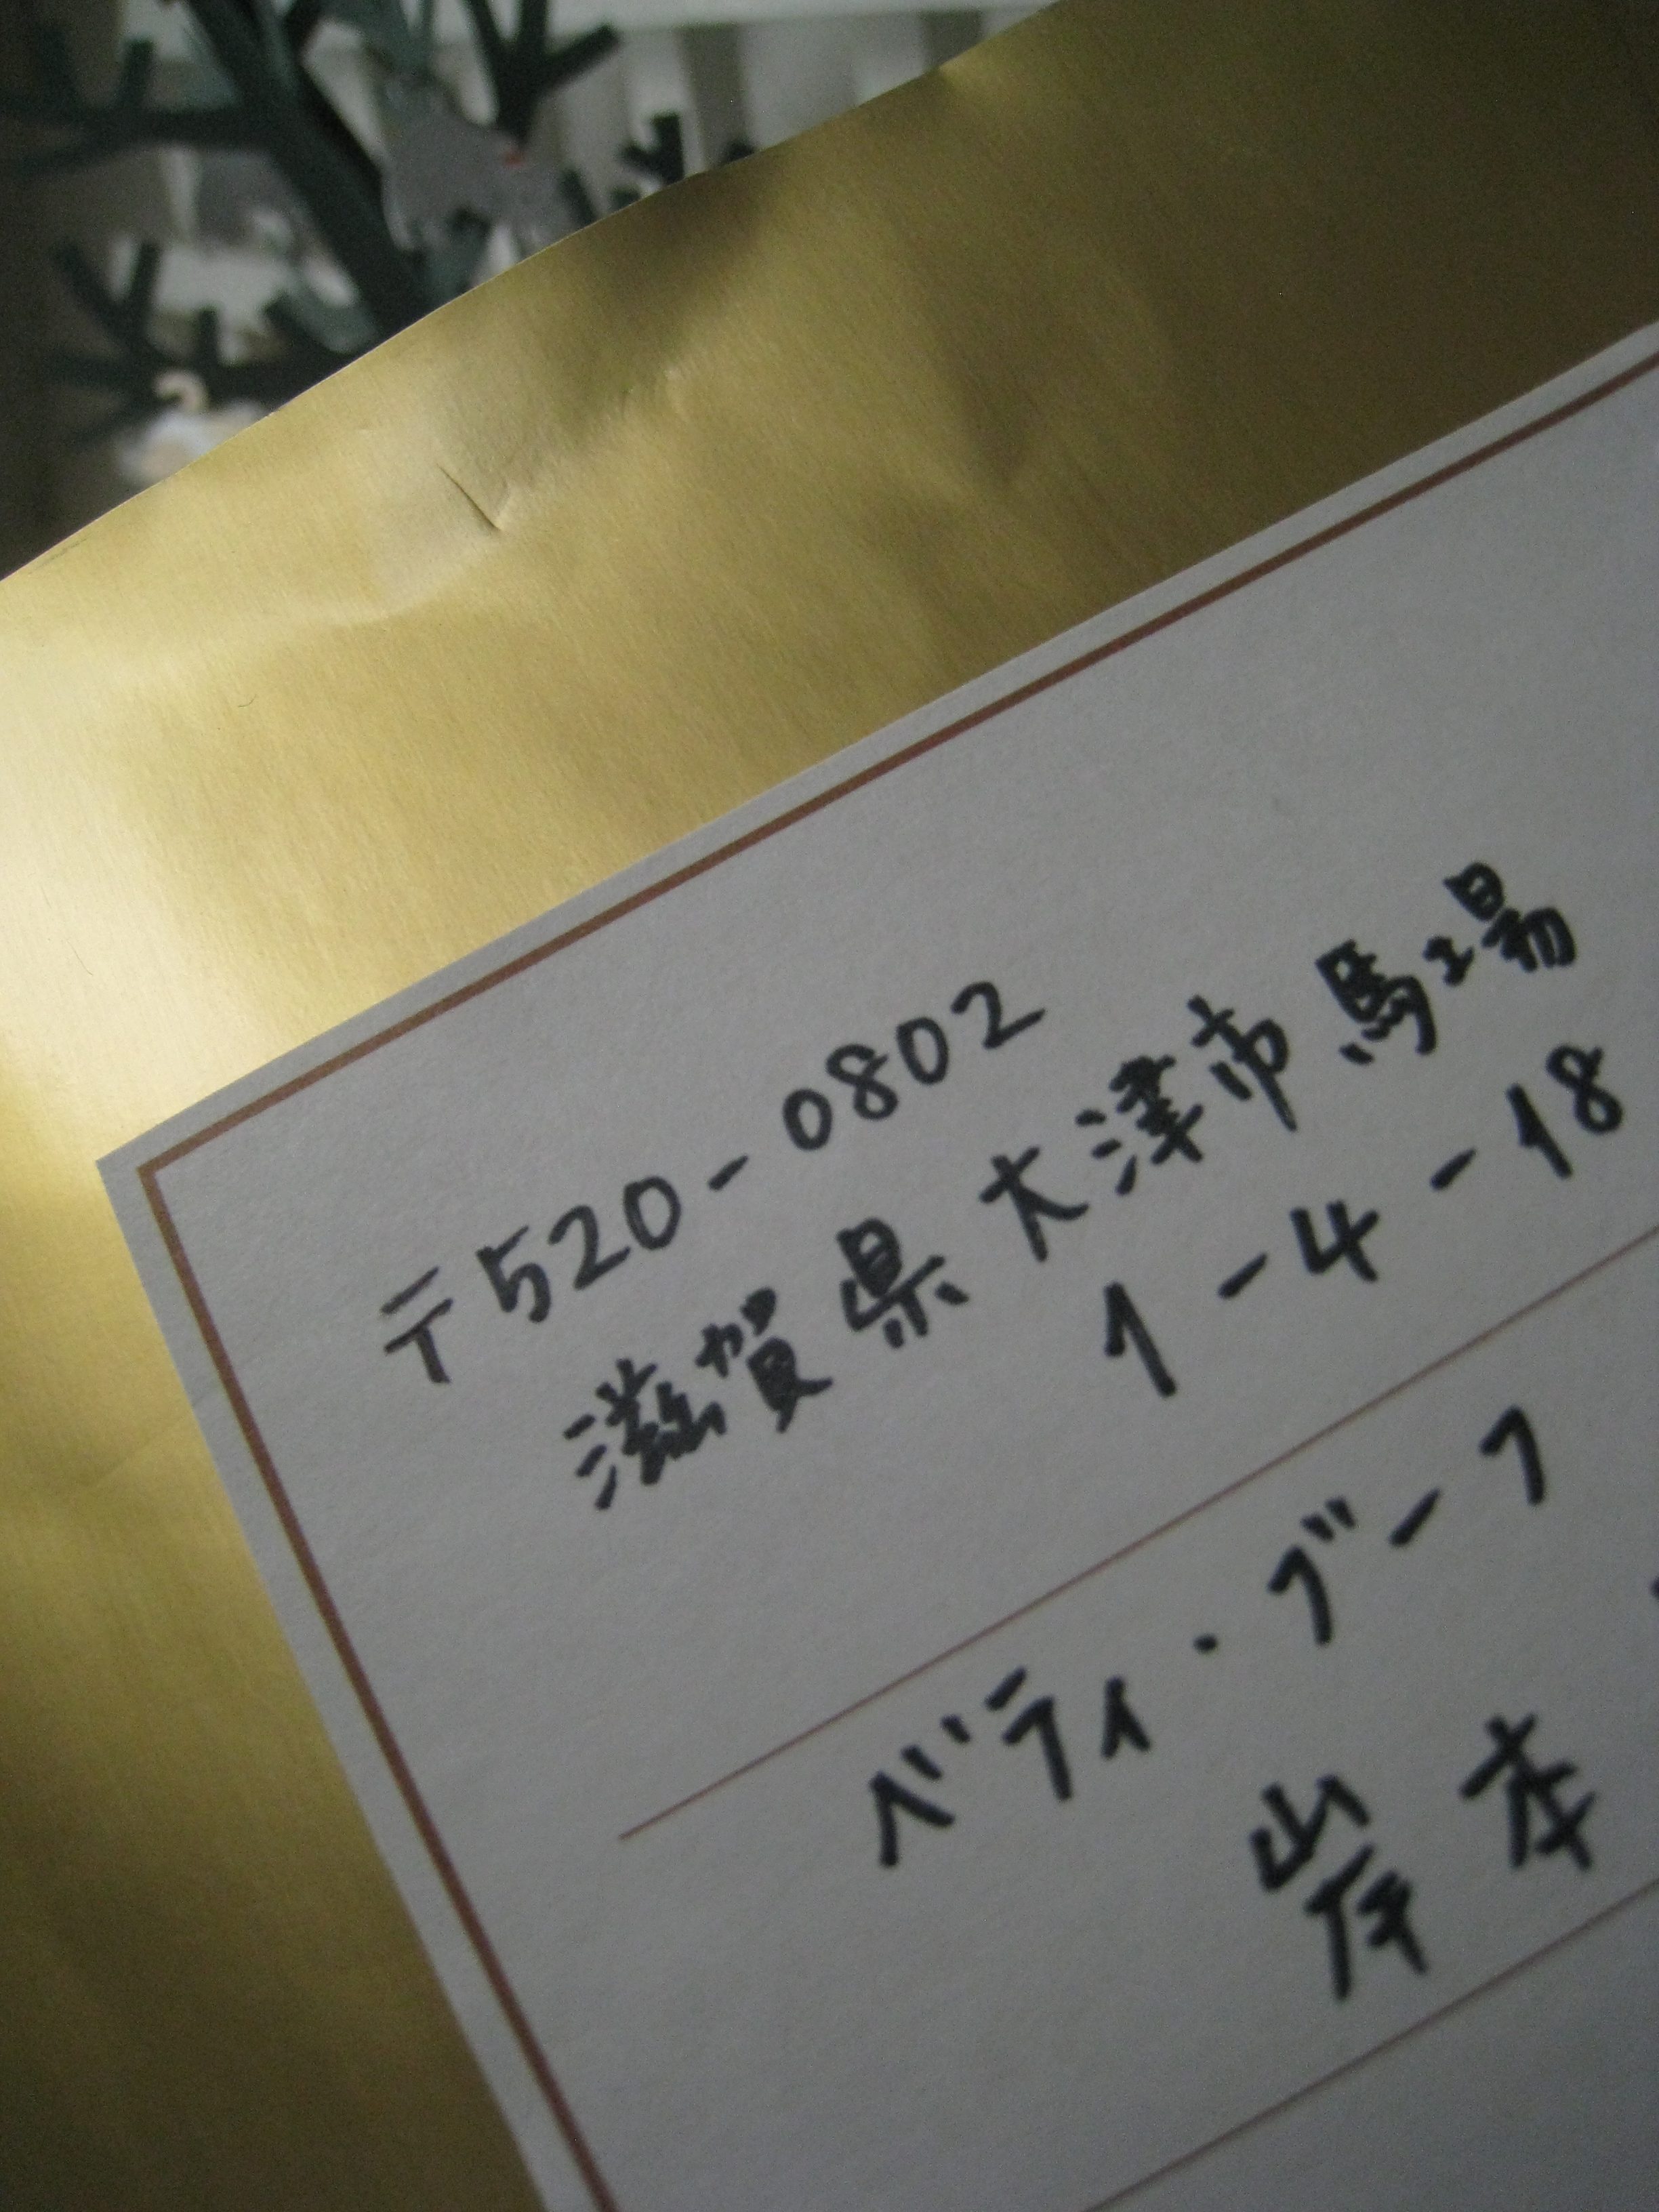 〒520-0802
滋賀県大津市馬場
1-4-18
ベティ・ブーフ
岸本